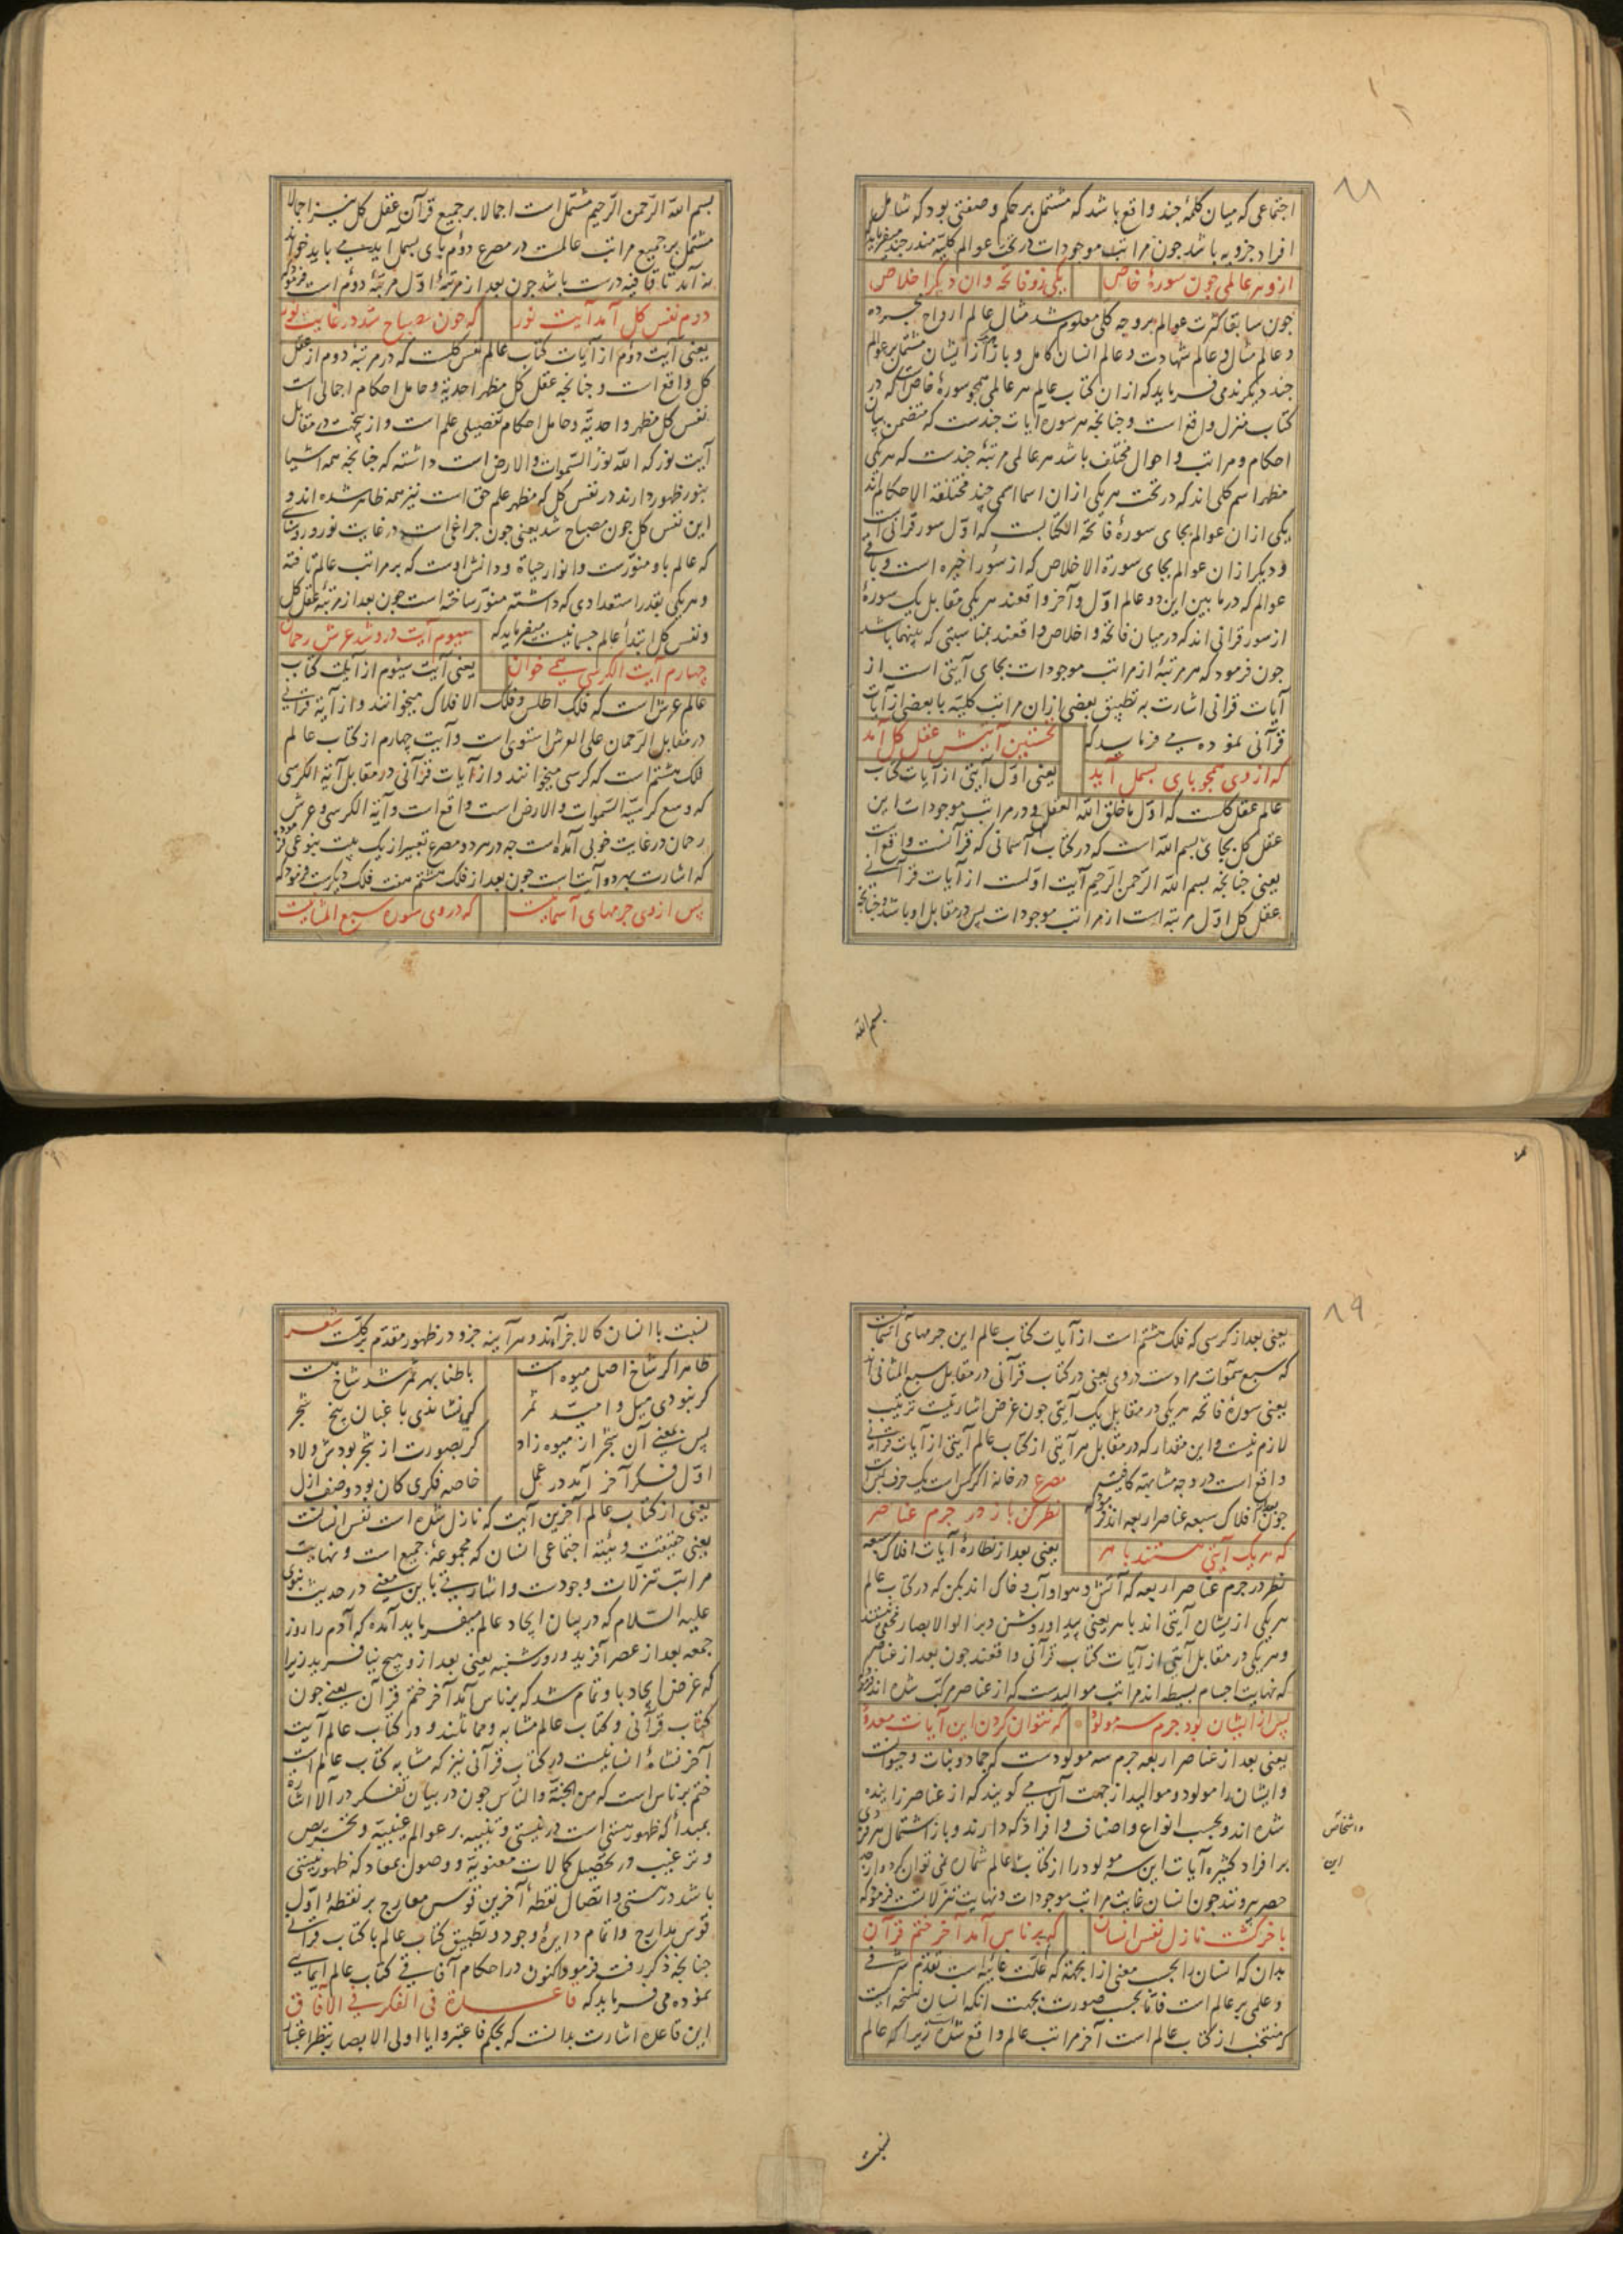 ۸۸
اجتماعی که میان کلمهٔ چند واقع باشد که مشتمل بر حکم و صفتی بود که شامل
افراد جزویه باشد چون مراتب موجودات در تحت عوالم کلیه مندرجند میفرماید
ازو هر عالمی چون سورهٔ خاص یکی زو فاتحه وان دیگر اخلاص
چون سابقا کثرت عوالم بر وجه کلی معلوم شد مثال عالم ارواح مجرده
و عالم مثال و عالم شهادت و عالم انسان کامل و باز هر یک از ایشان مشتمل بر عوالم
چند دیگرند می فرماید که از ان کتاب عالم هر عالمی همچو سورهٔ خاص است که در
کتاب منزل واقع است و چنانچه هر سوره آیات چندست که متضمن بیان
احکام و مراتب و احوال مختلف باشد هر عالمی مرتبهٔ چندست که هر یکی
مظهر اسم کلی اند که در تحت هر یکی از ان اسما اسمی چند مختلفة الاحکام اند
یکی از ان عوالم بجای سورهٔ فاتحة الکتابست که اول سور قرانی است
و دیگر از ان عوالم بجای سورة الاخلاص که از سور اخیره است و باقی
عوالم که در ما بین این دو عالم اول و آخر واقعند هر یکی مقابل یک سورهٔ
از سور قرانی اند که در میان فاتحه و اخلاص واقعند بمناسبتی که بینهما باشد
چون فرمود که هر مرتبهٔ از مراتب موجودات بجای آیتی است از
آیات قرانی اشارت به تطبیق بعضی از ان مراتب کلیه با بعضی از آیات
قرآنی نموده می فرماید که نخستین آیتش عقل کل آمد
که از وی همچو بای بسمل آید یعنی اول آیتی از آیات کتاب
عالم عقل کلست که اول ما خلق الله العقل و در مراتب موجودات این
عقل کل بجای بسم الله است که در کتاب آسمانی که قرآنست واقع است
یعنی چنانچه بسم الله الرحمن الرحیم آیت اولست از آیات قرآنی
عقل کل اول مرتبه است از مراتب موجودات پس در مقابل او باشد و چنانچه
بسم الله
بسم الله الرحمن الرحیم مشتمل است اجمالا بر جمیع قرآن عقل کل نیز اجمالا
مشتمل بر جمیع مراتب عالمست در مصرع دوم بای بسمل آید می باید خواند
نه آمد تا قافیه درست باشد چون بعد از مرتبهٔ اول مرتبهٔ دوم است فرمود که
دوم نفس کل آمد آیت نور که چون مصباح شد در غایت نور
یعنی آیت دوم از آیات کتاب عالم نفس کلست که در مرتبهٔ دوم از عقل
کل واقع است و چنانچه عقل کل مظهر احدیة و حامل احکام اجمالی است
نفس کل مظهر واحدیة و حامل احکام تفصیلی علم است و از ینجهت در مقابل
آیت نور که الله نور السموات والارض است داشته که چنانچه همه اشیا
بنور ظهور دارند در نفس کل که مظهر علم حق است نیز همه ظاهر شده اند و
این نفس کل چون مصباح شد یعنی چون چراغی است در غایت نور و روشنائی
که عالم باو منورست و انوار حیاة و دانش اوست که بر مراتب عالم تافته
و هر یکی بقدر استعدادی که داشته منور ساخته است چون بعد از مرتبهٔ عقل کل
و نفس کل ابتدأ عالم جسمانیست میفرماید که سیوم آیت درو شد عرش رحمان
چهارم آیت الکرسی همی خوان یعنی آیت سیوم از آیات کتاب
عالم عرش است که فلک اطلس و فلک الافلاک میخوانند و از آیة قرآنی
در مقابل الرحمان علی العرش استوی است و آیت چهارم از کتاب عالم
فلک هشتم است که کرسی میخوانند و از آیات قرآنی در مقابل آیة الکرسی
که وسع کرسیه السموات والارض است واقع است و آیة الکرسی و عرش
رحمان در غایت خوبی آمده است چه در هر دو مصرع تعبیر از یک بیت بنوعی فرموده
که اشارت بهر دو آیت است چون بعد از فلک هشتم هفت فلک دیگرست فرمود که
پس از وی جرمهای آسمانیست که در وی سوره سبع المثانیست
۸۹
یعنی بعد از کرسی که فلک هشتم است از آیات کتاب عالم این جرمهای آسمانست
که سبع سموات مرادست در وی یعنی در کتاب قرآنی در مقابل سبع المثانی اند
یعنی سورهٔ فاتحه هر یکی در مقابل یک آیتی چون غرض اشارتیست ترتیب
لازم نیست و این مقدار که در مقابل هر آیتی از کتاب عالم آیتی از آیات قرآنی
واقع است در وجه مشابهة کافیست مصرع در خانه اگر کس است یک حرف بس است
چون بعد از افلاک سبعه عناصر اربعه اند فرمود که نظر کن باز در جرم عناصر
که هر یک آیتی هستند باهر یعنی بعد از نظارهٔ آیات افلاک سبعه
نظر در جرم عناصر اربعه که آتش و هوا و آب و خاک اند بکن که در کتاب عالم
هر یکی از یشان آیتی اند باهر یعنی پیدا و روشن و بر اولوا الابصار مخفی نیستند
و هر یکی در مقابل آیتی از آیات کتاب قرآنی واقعند چون بعد از عناصر
که نهایت اجسام بسیطه اند مراتب موالیدست که از عناصر مرکب شده اند فرمود که
پس از ایشان بود جرم سه مولود که نتوان کردن این آیات معدود
یعنی بعد از عناصر اربعه جرم سه مولودست که جماد و نبات و حیوانست
و ایشان را مولود و موالید از جهت آن می گویند که از عناصر زاییده
شده اند و بحسب انواع و اصناف و افراد که دارند و باز اشتمال هر فردی
و اشخاص
بر افراد کثیره آیات این سه مولود را از کتاب عالم شماره نمی توان کرد و از حد
این
حصر بیرونند چون انسان غایت مراتب موجودات و نهایت تنزلاتست فرمود که
باخر گشت نازل نفس انسان که بر ناس آمد آخر ختم قرآن
بدان که انسان را بحسب معنی از انجهة که علت غائیه است تقدم شرفی
و علمی بر عالم است فاما بحسب صورت بجهت آنکه انسان نسخه ایست
که منتخب از کتاب عالم است آخر مراتب عالم واقع شده است زیرا که عالم
نسبت
نسبت با انسان کالاجزاءند و هر آینه جزو در ظهور مقدم بر کلست شعر
ظاهرا گر شاخ اصل میوه است باطنا بهر ثمر شد شاخ هست
گر نبودی میل و امید ثمر کی نشاندی باغبان بیخ شجر
پس بمعنی آن شجر از میوه زاد گر بصورت از شجر بودش ولاد
اول فکر آخر آمد در عمل خاصه فکری کان بود وصف ازل
یعنی از کتاب عالم آخرین آیت که نازل شده است نفس انسانست
یعنی حقیقت و هیئة اجتماعی انسان که مجموعهٔ جمیع است و نهایت
مراتب تنزلات وجودست و اشارتی باین معنی در حدیث نبوی
علیه السلام که در بیان ایجاد عالم میفرماید آمده که آدم را روز
جمعه بعد از عصر آفرید و روز شنبه یعنی بعد ازو هیچ نیافرید زیرا
که غرض ایجاد باو تمام شد که بر ناس آمد آخر ختم قرآن یعنی چون
کتاب قرآنی و کتاب عالم مشابه و مماثلند و در کتاب عالم آیت
آخر نشاهٔ انسانیست در کتاب قرآنی نیز که مشابه کتاب عالم است
ختم بر ناس است که من الجنة والناس چون در بیان تفکر در آلا اشارة
بمبدأ که ظهور هستی است در نیستی و تنبیه بر عوالم غیبیه و تحریص
و ترغیب در تحصیل کمالات معنویة و وصول بمعاد که ظهور نیستی
باشد در هستی و اتصال نقطهٔ آخرین قوس معارج بر نقطهٔ اول
قوس مدارج و اتمام دایرهٔ وجود و تطبیق کتاب عالم با کتاب قرآنی
چنانچه ذکر رفت فرمود اکنون در احکام آفاقی کتاب عالم ایمایی
نموده می فرماید که قاعدة فی الفکر فی الآفاق
این قاعده اشارت بدانست که بحکم فاعتبروا یا اولی الابصار بنظر اعتبار